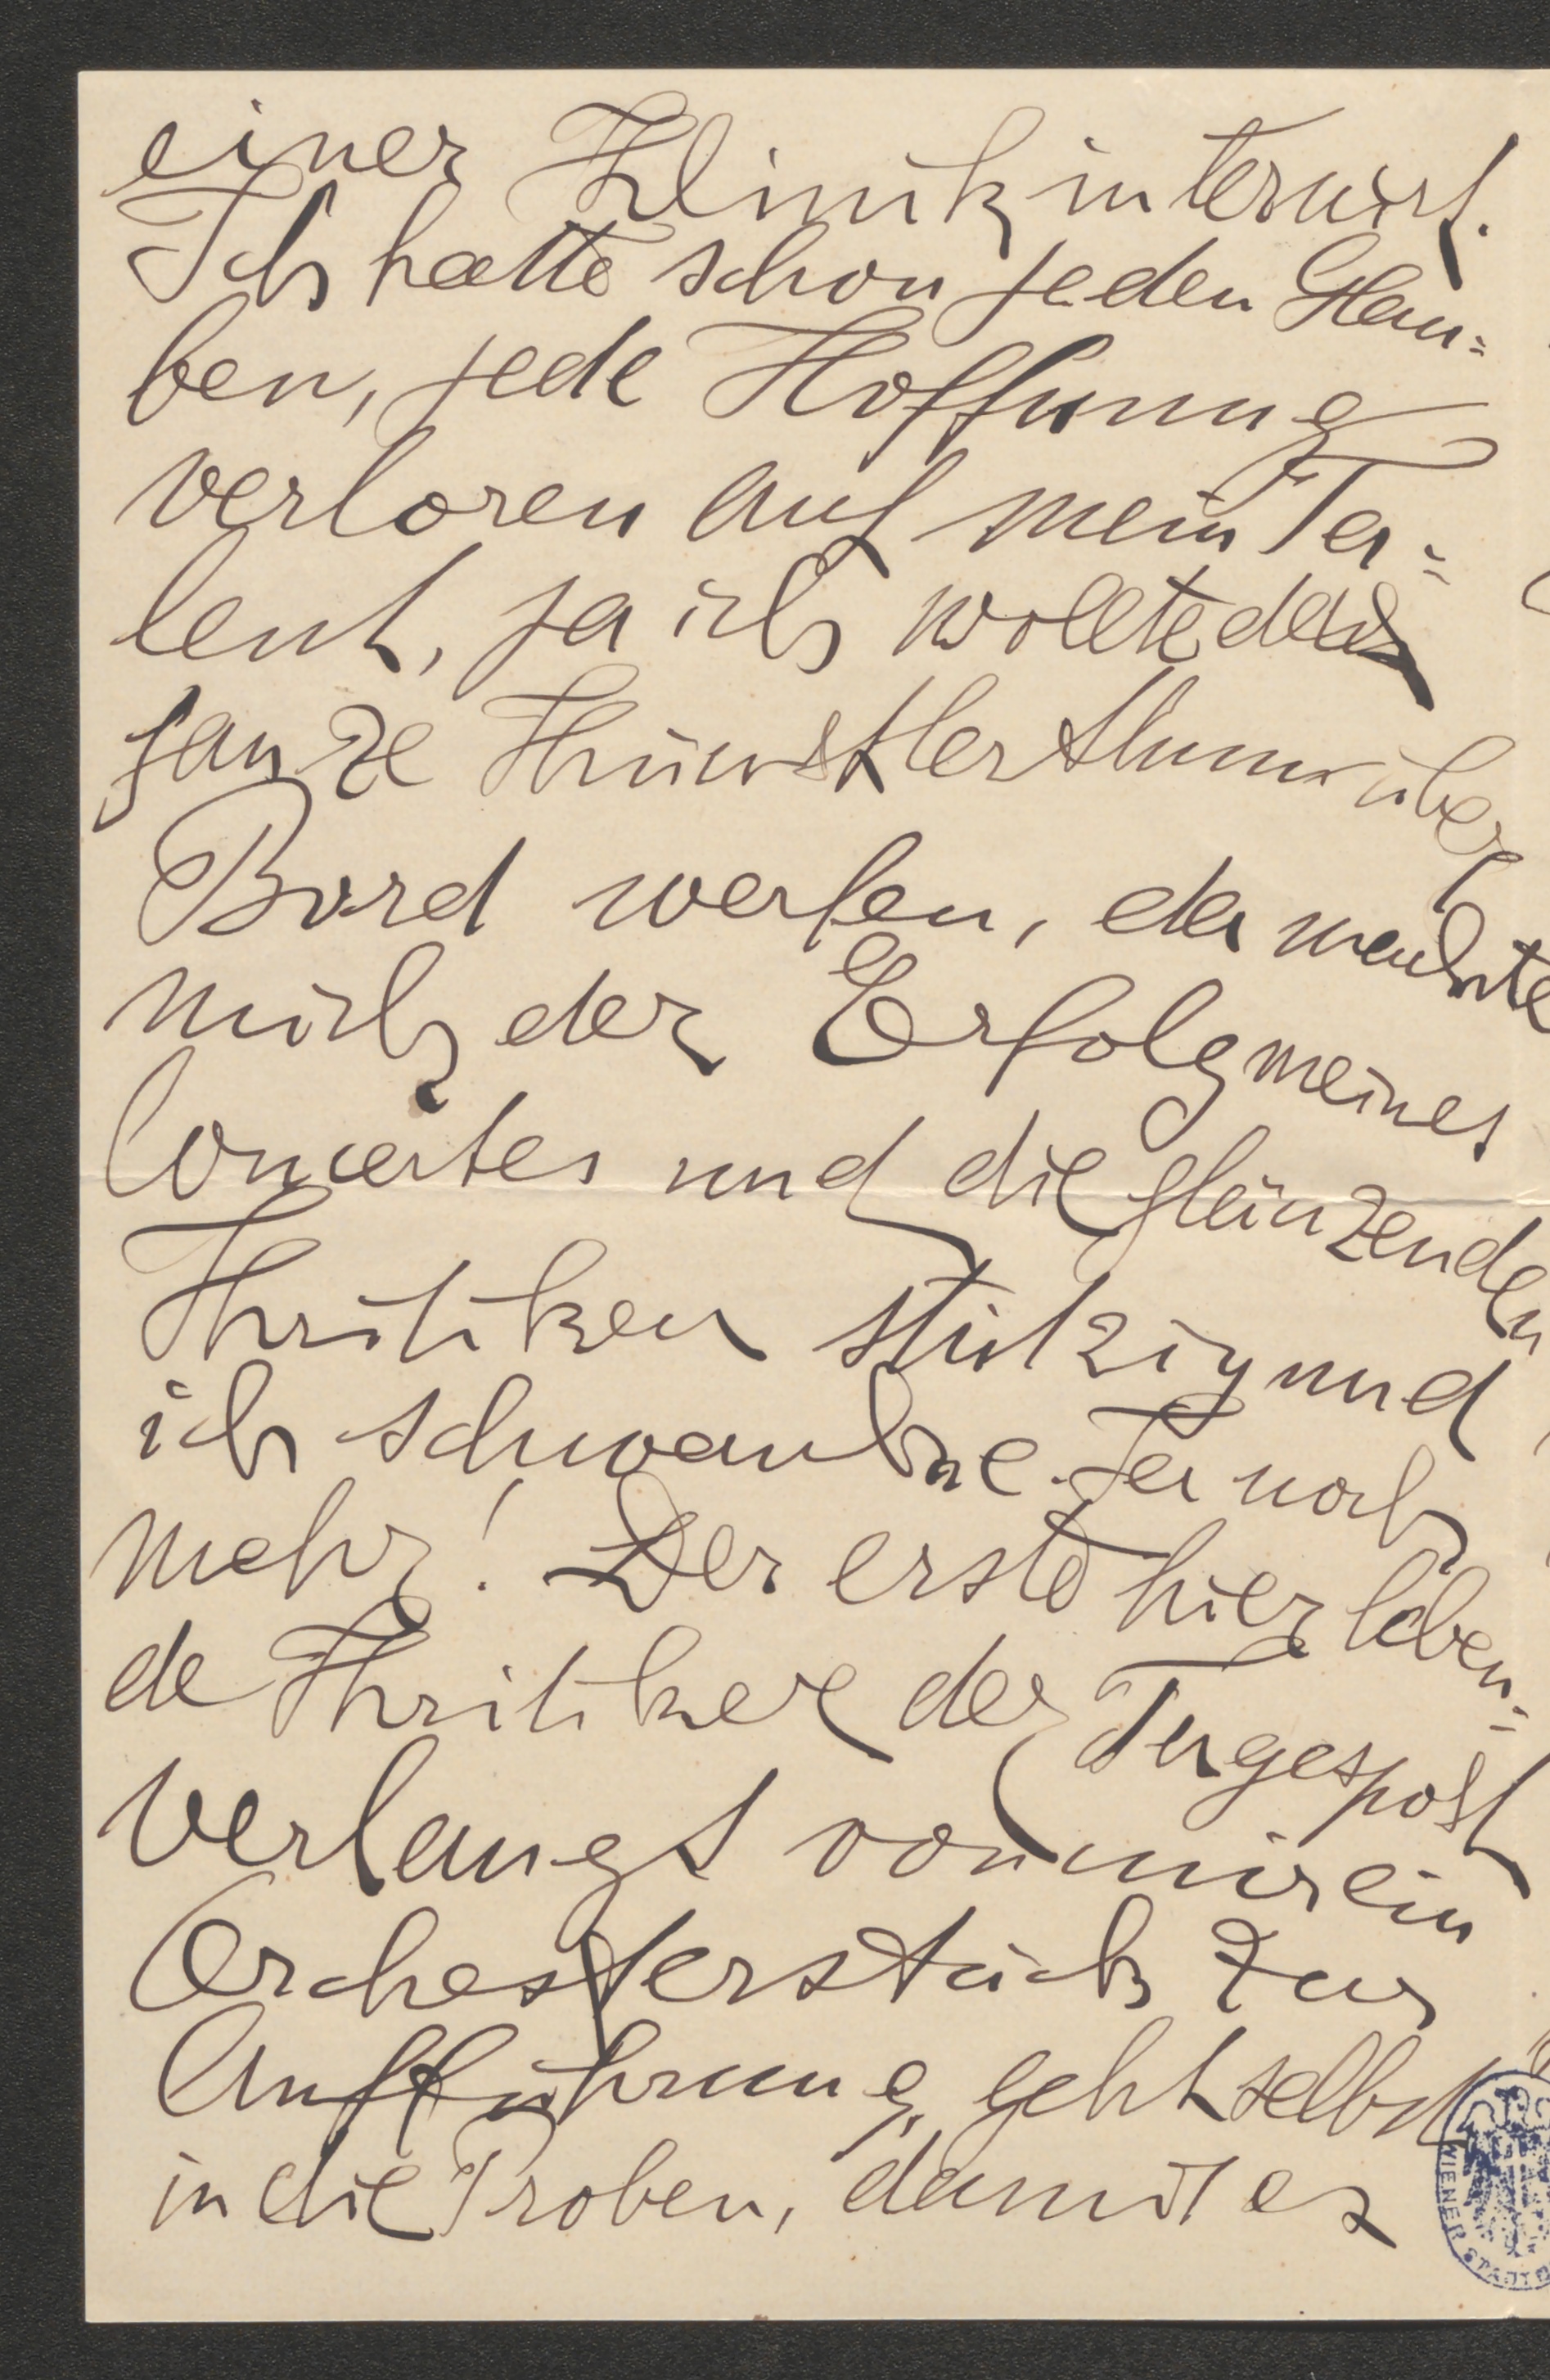 einer Klinik internirt.
Ich hatte schon jeden Glau=
ben, jede Hoffnung
verloren auf mein Ta=
lent, ja ich wollte das
ganze Künstlerthum über
Bord werfen, da machte
mich der Erfolg meines
Concertes und die glänzenden
Kritiken stutzig und
ich schwanke. Ja noch
mehr! Der erste hier leben=
de Kritiker der Tagespost
verlangt von mir ein
Orchesterstück zur
Aufführung, geht selbst
in die Proben, damit es
WIENER STADT